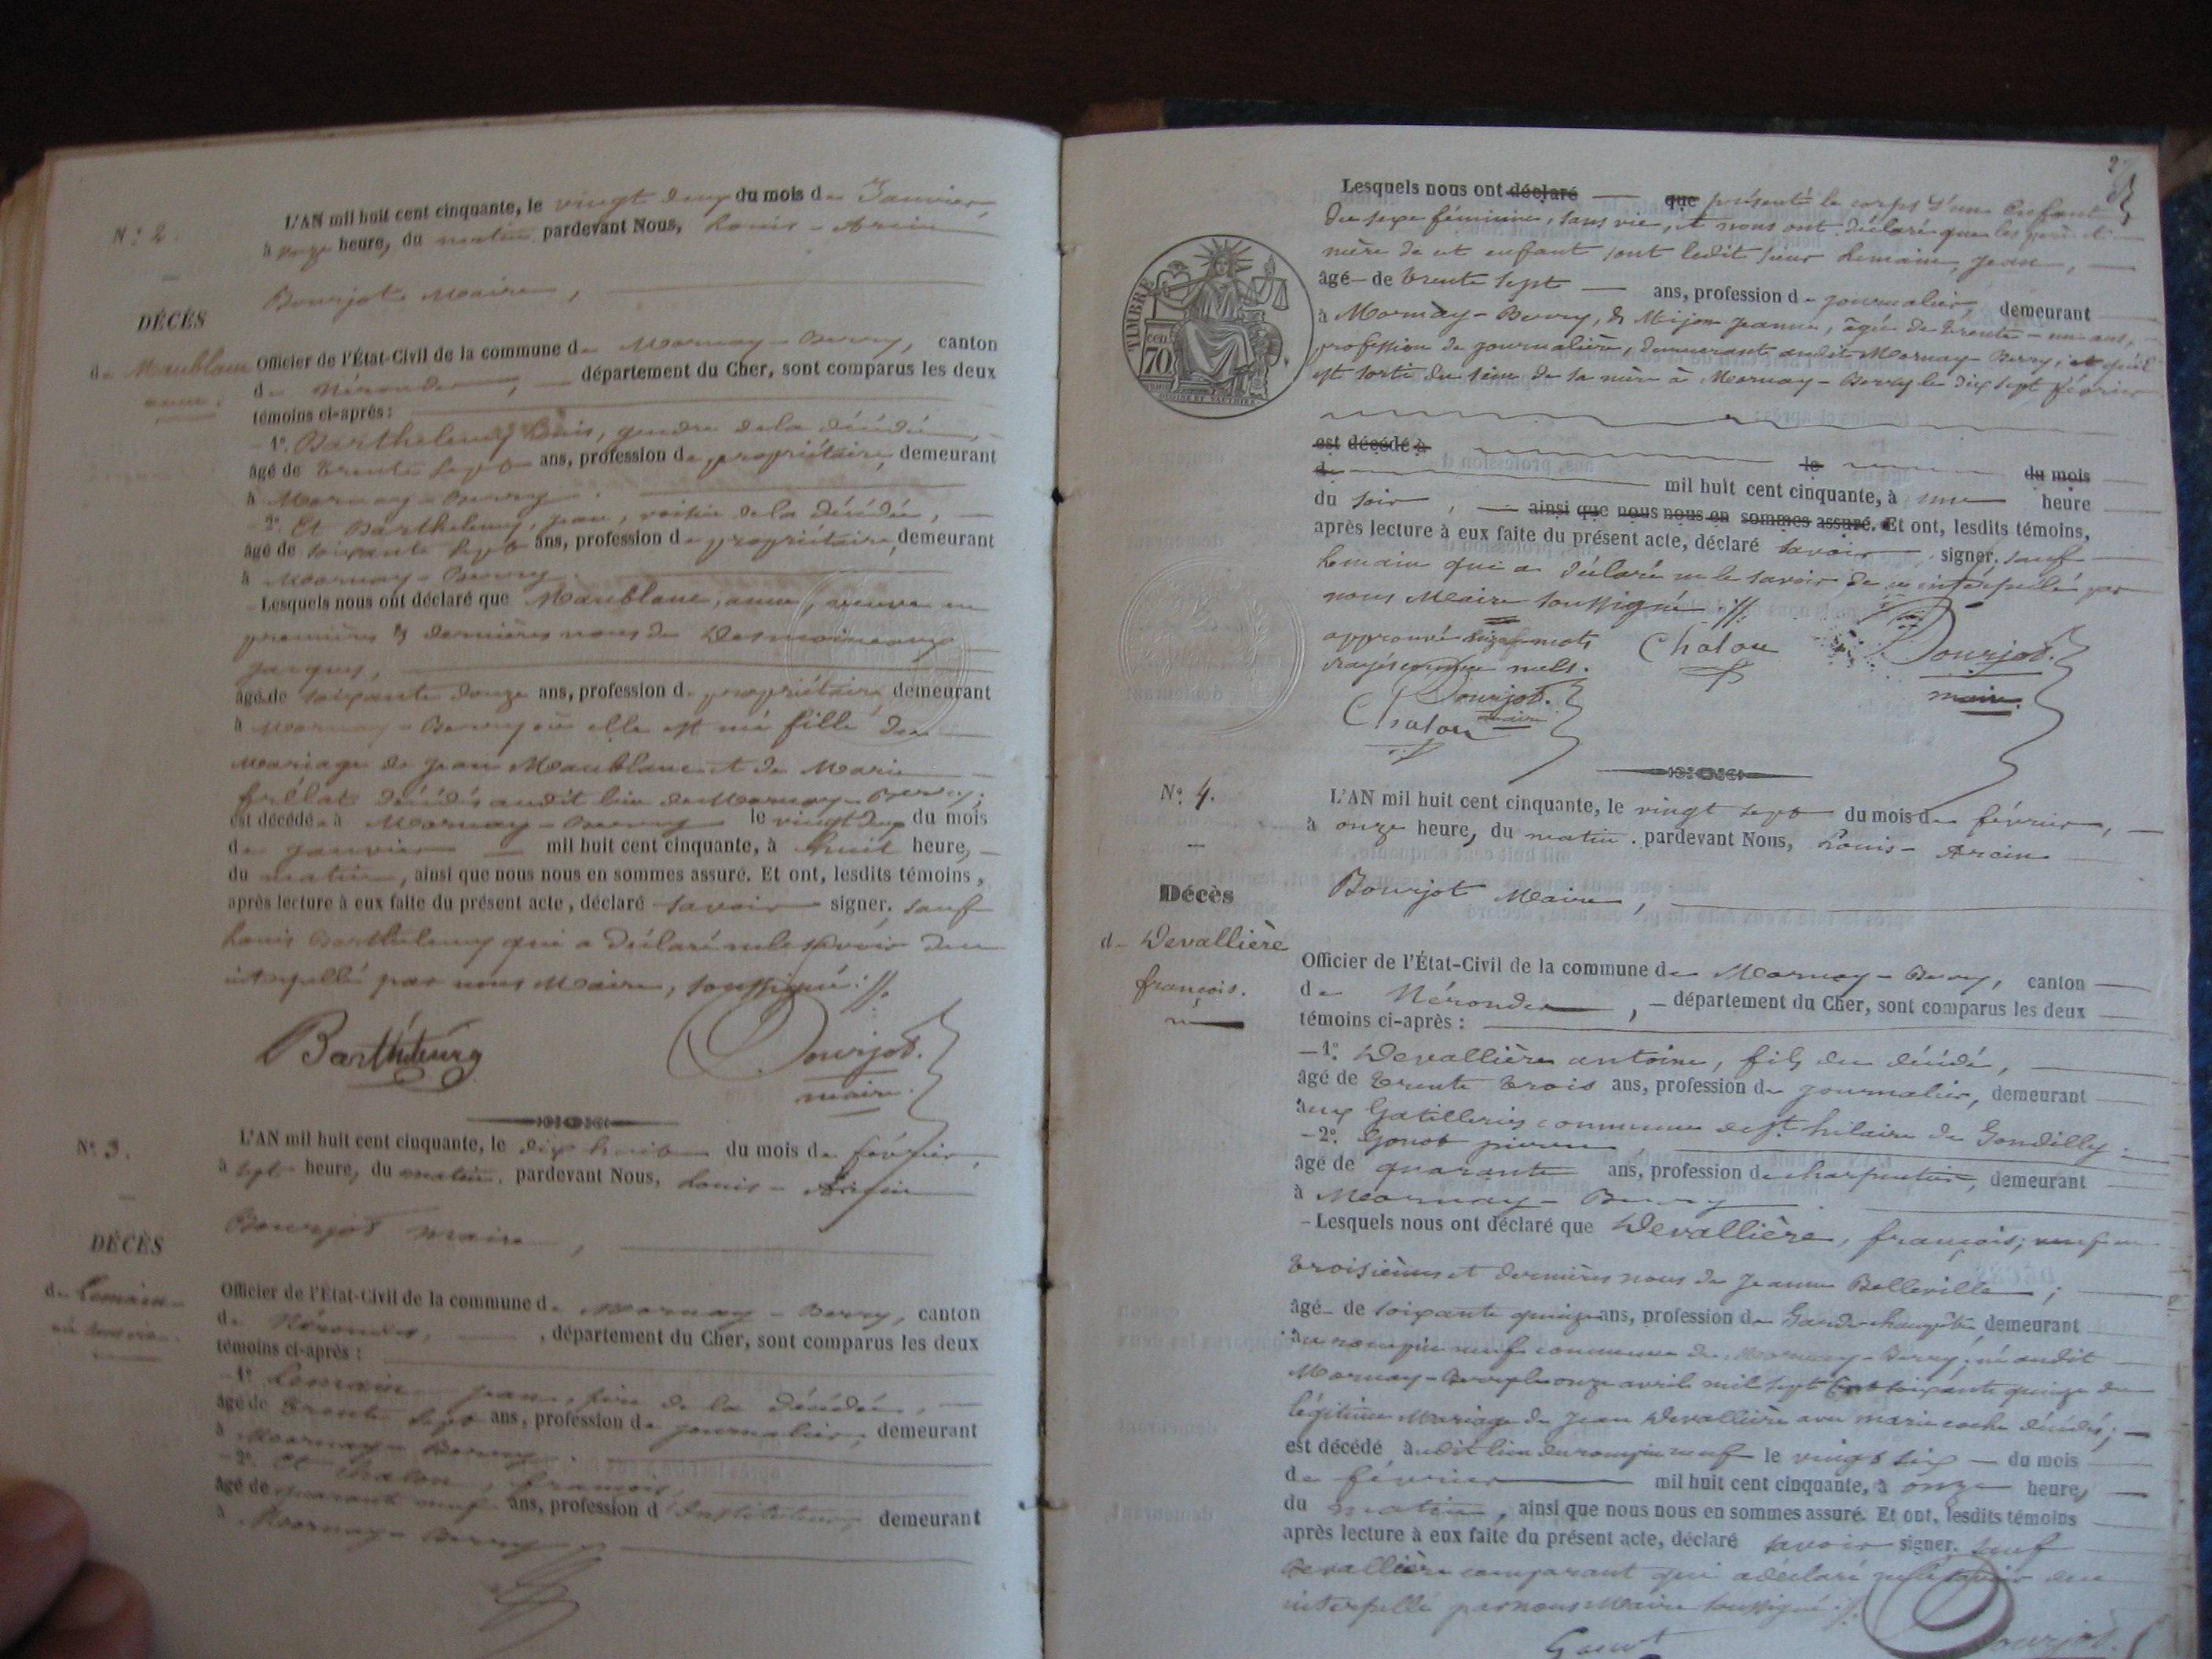 N.° 2.
L'AN mil huit cent cinquante, le vingt deux du mois de Janvier,
à onze heure, du matin. pardevant Nous, Louis - Arcin
Bourjot Maire,
DÉCÈS
de Maublanc
anne.
Officier de l'État-Civil de la commune de Mornay - Berry, canton
de Nérondes, département du Cher, sont comparus les deux
témoins ci-après :
- 1.° Barthelemy Louis, gendre de la décédée,
âgé de trente sept ans, profession de propriétaire, demeurant
à Mornay - Berry.
- 2.° Et Barthelemy, jean, voisin de la décédée,
âgé de soixante sept ans, profession de propriétaire, demeurant
à Mornay - Berry.
- Lesquels nous ont déclaré que Maublanc, anne, veuve en
premières & dernières noces de Desmoineaux
jacques,
âgée de soixante douze ans, profession de propriétaire, demeurant
à Mornay - Berry où elle est née fille du
mariage de jean Maublanc et de Marie
frélat décédés audit lieu de Mornay - Berry;
est décédée à Mornay - Berry le vingt deux du mois
de janvier mil huit cent cinquante, à huit heure,
du matin, ainsi que nous nous en sommes assuré. Et ont, lesdits témoins,
après lecture à eux faite du présent acte, déclaré savoir signer. sauf
Louis Barthelemy qui a déclaré ne le savoir de ce
interpellé par nous Maire, soussigné :
Barthelemy
Bourjot.
maire.
N.° 3.
L'AN mil huit cent cinquante, le dix huit du mois de février,
à sept heure, du matin. pardevant Nous, Louis - Arcin
Bourjot maire,
DÉCÈS
de Lemain
née sans vie.
Officier de l'État-Civil de la commune de Mornay - Berry, canton
de Nérondes, département du Cher, sont comparus les deux
témoins ci-après :
- 1.° Lemain jean, père de la décédée,
âgé de trente sept ans, profession de journalier, demeurant
à Mornay - Berry.
- 2.° Et Chalon, françois,
âgé de quarante neuf ans, profession d'Instituteur, demeurant
à Mornay - Berry,
2
Lesquels nous ont déclaré que présenté le corps d'un Enfant
du sexe féminin, sans vie, et nous ont déclaré que les père et
mère de cet enfant sont ledit sieur Lemain, jean,
âgé de trente sept ans, profession de journalier, demeurant
à Mornay - Berry, & Mijon jeanne, âgée de trente - un ans,
profession de journalière, demeurant audit Mornay - Berry; et qu'il
est sorti du sein de sa mère à Mornay - Berry le dix sept février
TIMBRE
70
cen
est décédé à le du mois
de mil huit cent cinquante, à une heure
du soir, ainsi que nous nous en sommes assuré. Et ont, lesdits témoins,
après lecture à eux faite du présent acte, déclaré savoir signer. sauf
Lemain qui a déclaré ne le savoir de ce interpellé par
nous Maire soussigné :
approuvé mots
rayés comme nuls.
Chalon
Bourjot.
maire.
Bourjot.
maire
Chalon
N.° 4.
L'AN mil huit cent cinquante, le vingt sept du mois de février,
à onze heure, du matin. pardevant Nous, Louis - Arcin
Bourjot Maire,
Décès
de Devallière
françois.
Officier de l'État-Civil de la commune de Mornay - Berry, canton
de Nérondes, département du Cher, sont comparus les deux
témoins ci-après :
- 1.° Devallière antoine, fils du décédé,
âgé de trente trois ans, profession de journalier, demeurant
aux Gatilleries commune de St. hilaire de Gondilly.
- 2.° Gonot pierre
âgé de quarante ans, profession de charpentier, demeurant
à Mornay - Berry.
- Lesquels nous ont déclaré que Devallière, françois; veuf en
troisièmes et dernières noces de jeanne Belleville;
âgé de soixante quinze ans, profession de Garde champêtre, demeurant
au neuf commune de Mornay - Berry; né audit
Mornay - Berry le onze avril mil sept Cent soixante quinze du
légitime Mariage de jean Devallière avec marie décédés;
est décédé audit lieu du neuf le vingt six du mois
de février mil huit cent cinquante, à onze heure,
du matin, ainsi que nous nous en sommes assuré. Et ont, lesdits témoins
après lecture à eux faite du présent acte, déclaré savoir signer. sauf
Devallière comparant qui a déclaré ne le savoir de ce
interpellé par nous Maire soussigné :
Gonot
Bourjot.